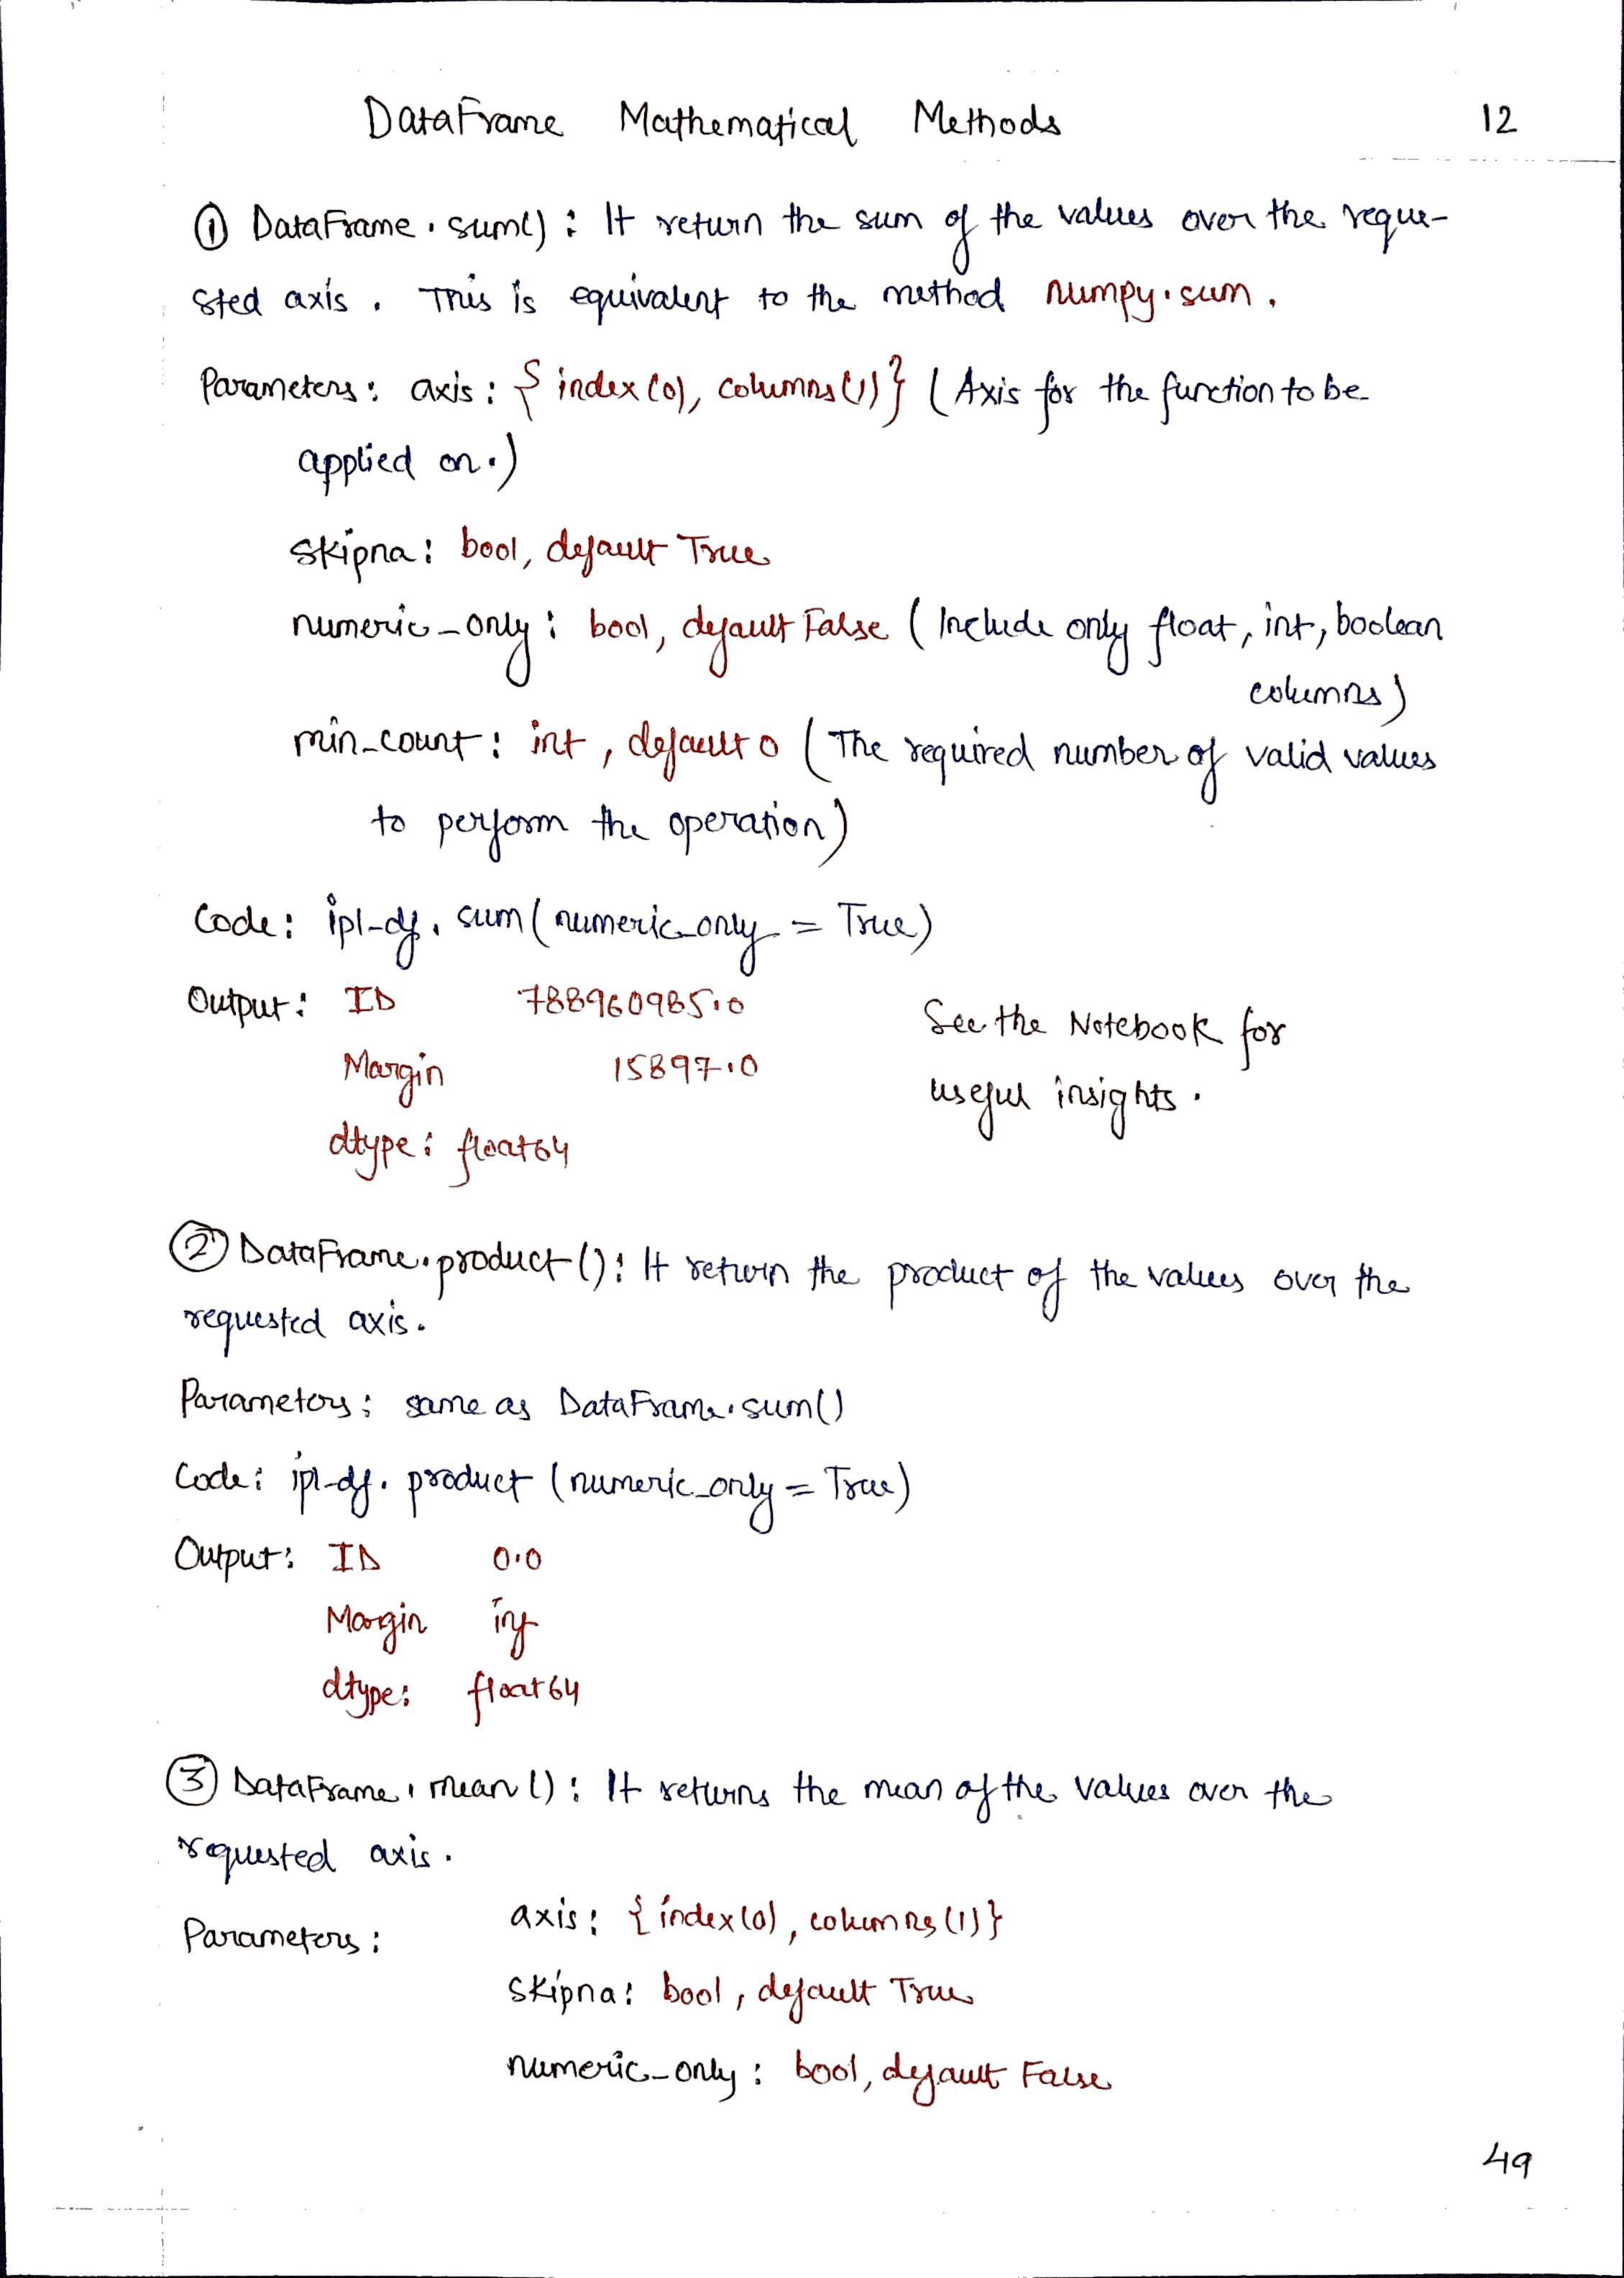 DataFrame Mathematical Methods
12
① DataFrame.sum() : It return the sum of the values over the reque-
sted axis. This is equivalent to the method numpy.sum.
Parameters: axis: {index(0), columns(1)} (Axis for the function to be
applied on.)
skipna: bool, default True
numeric_only: bool, default False (Include only float, int, boolean
columns)
min_count: int, default 0 (The required number of valid values
to perform the operation)
Code: ipl-df.sum(numeric_only = True)
Output: ID 788960985.0
See the Notebook for
Margin 15897.0
useful insights.
dtype: float64
② DataFrame.product(): It return the product of the values over the
requested axis.
Parameters: same as DataFrame.sum()
Code: ipl-df.product (numeric_only = True)
Output: ID 0.0
Margin inf
dtype: float64
③ DataFrame.mean(): It returns the mean of the values over the
requested axis.
Parameters: axis: {index(0), columns(1)}
skipna: bool, default True
numeric_only: bool, default False
49